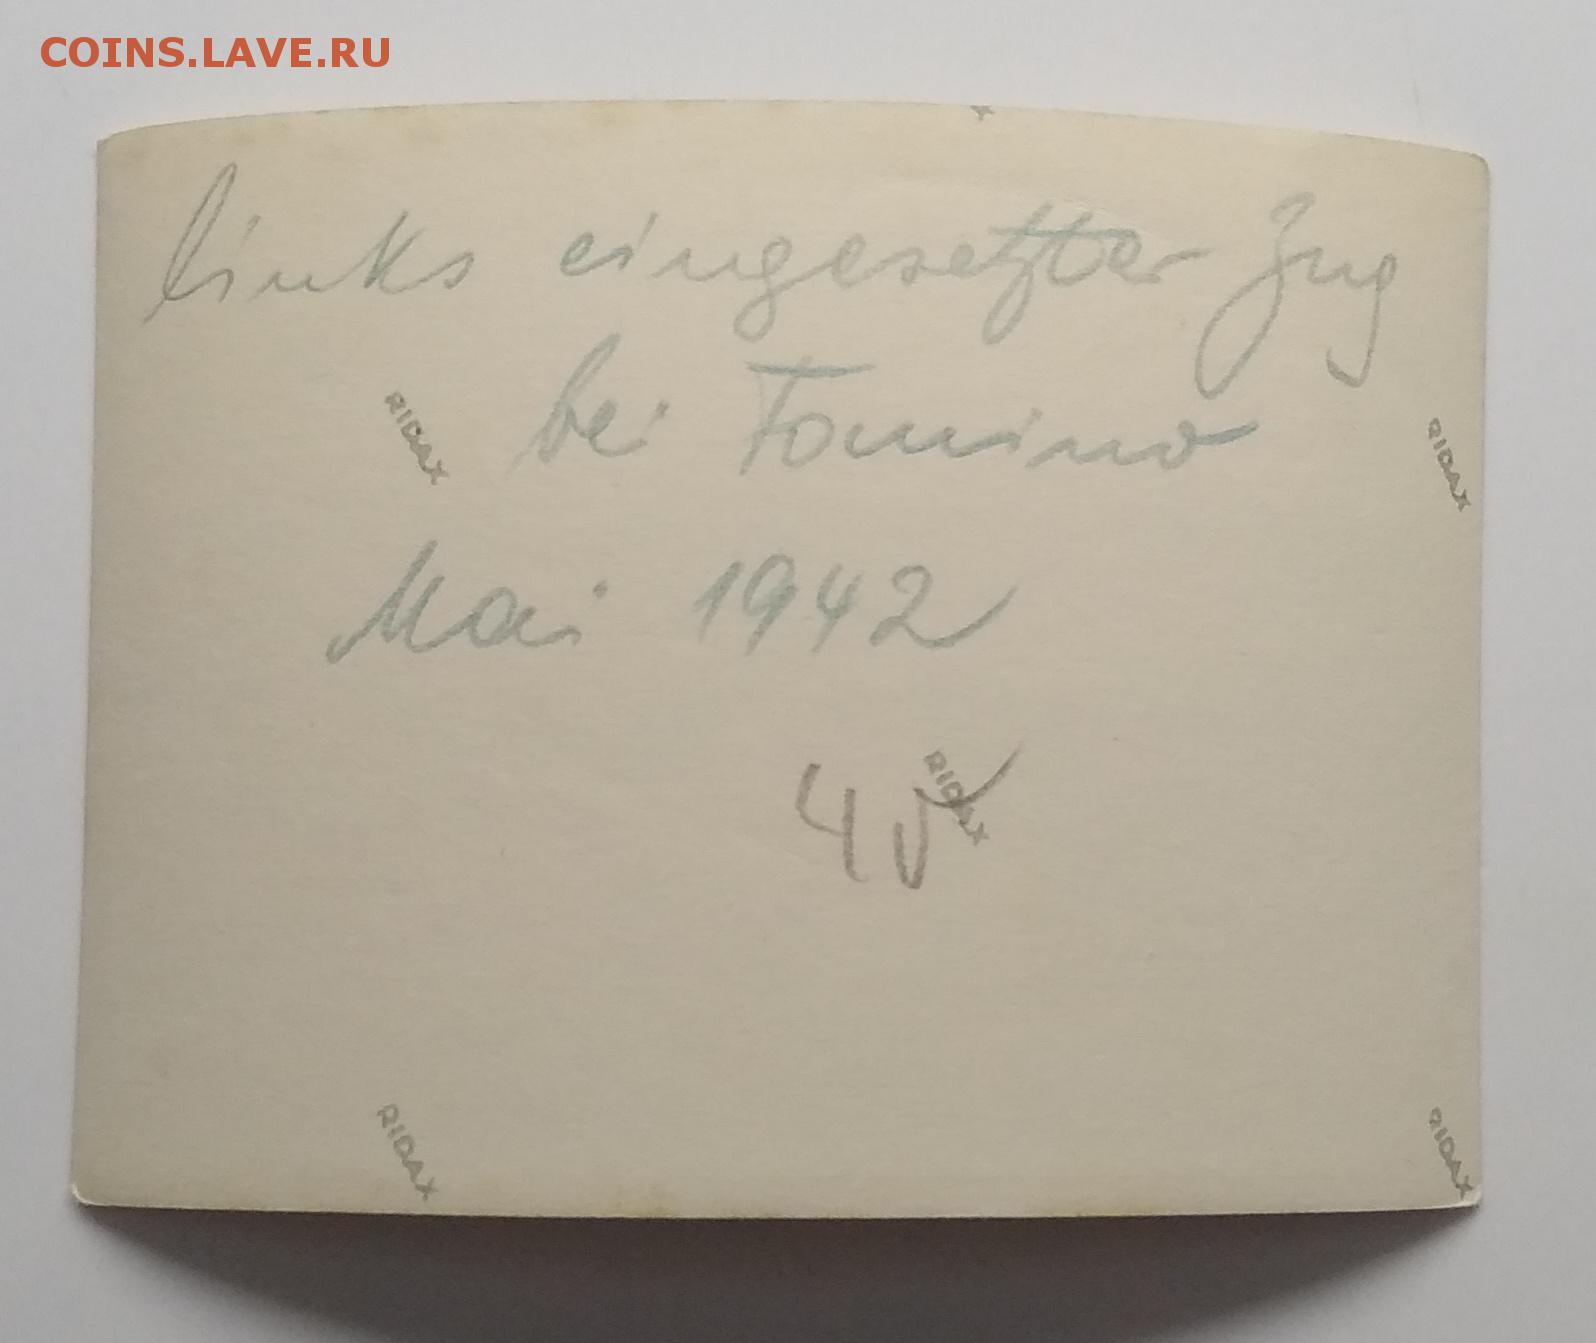 COINS.LAVE.RU
links eingesetzter Zug
bei Fomino
RIDAX
RIDAX
Mai 1942
RIDAX
4
RIDAX
RIDAX